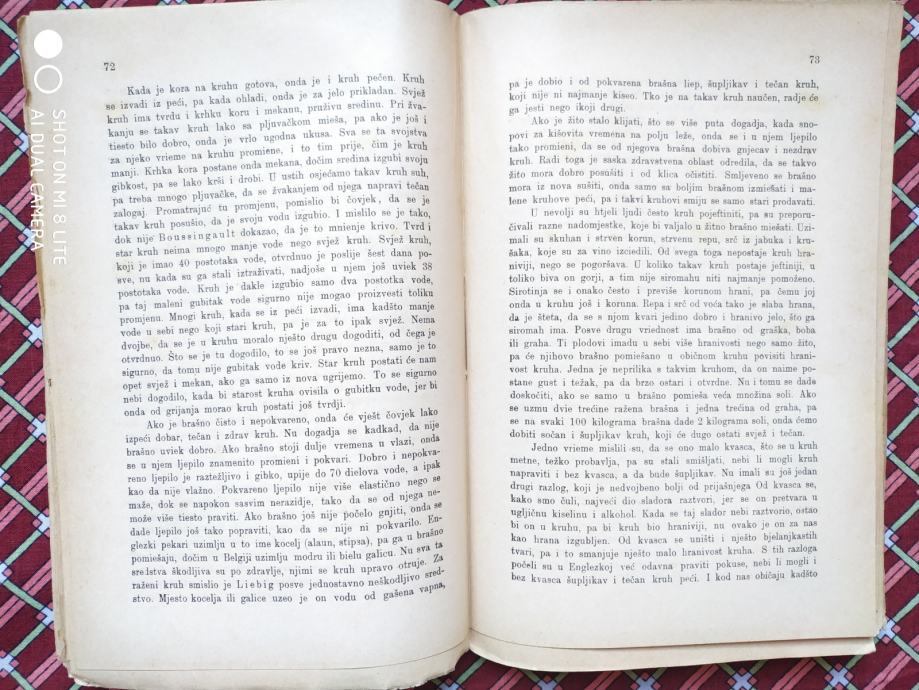 SHOT ON MI 8 LITE
AI DUAL CAMERA
72
Kada je kora na kruhu gotova, onda je i kruh pečen. Kruh
se izvadi iz peći, pa kada ohladi, onda je za jelo prikladan. Svjež
kruh ima tvrdu i krhku koru i mekanu, pruživu sredinu. Pri žva-
kanju se takav kruh lako sa pljuvačkom miešа, pa ako je još i
tiesto bilo dobro, onda je vrlo ugodna ukusa. Sva se ta svojstva
za njeko vrieme na kruhu promiene, i to tim prije, čim je kruh
manji. Krhka kora postane onda mekana, dočim sredina izgubi svoju
gibkost, pa se lako krši i drobi. U ustih osjećamo takav kruh suh,
pa treba mnogo pljuvačke, da se žvakanjem od njega napravi tečan
zalogaj. Promatrajuć tu promjenu, pomislio bi čovjek, da se je
takav kruh posušio, da je svoju vodu izgubio. I mislilo se je tako,
dok nije Boussingault dokazao, da je to mnienje krivo. Tvrd i
star kruh neima mnogo manje vode nego svjež kruh. Svjež kruh,
koji je imao 40 postotaka vode, otvrdnuo je poslije šest dana po-
sve, nu kada su ga stali iztraživati, nadjoše u njem još uviek 38
postotaka vode. Kruh je dakle izgubio samo dva postotka vode,
pa taj maleni gubitak vode sigurno nije mogao proizvesti toliku
promjenu. Mnogi kruh, kada se iz peći izvadi, ima kadšto manje
vode u sebi nego koji stari kruh, pa je za to ipak svjež. Nema
dvojbe, da se je u kruhu moralo nješto drugo dogoditi, od čega je
otvrdnuo. Što se je tu dogodilo, to se još pravo nezna, samo je to
sigurno, da tomu nije gubitak vode kriv. Star kruh postati će nam
opet svjež i mekan, ako ga samo iz nova ugrijemo. To se sigurno
nebi dogodilo, kada bi starost kruha ovisila o gubitku vode, jer bi
onda od grijanja morao kruh postati još tvrdji.
Ako je brašno čisto i nepokvareno, onda će vješt čovjek lako
izpeći dobar, tečan i zdrav kruh. Nu dogadja se kadkad, da nije
brašno uviek dobro. Ako brašno stoji dulje vremena u vlazi, onda
se u njem ljepilo znamenito promieni i pokvari. Dobro i nepokva-
reno ljepilo je raztežljivo i gibko, upije do 70 dielova vode, a ipak
kao da nije vlažno. Pokvareno ljepilo nije više elastično nego se
maže, dok se napokon sasvim nerazidje, tako da se od njega ne-
može više tiesto praviti. Ako brašno još nije počelo gnjiti, onda se
dade ljepilo još tako popraviti, kao da se nije ni pokvarilo. En-
glezki pekari uzimlju u to ime kocelj (alaun, stipsa), pa ga u brašno
pomiešaju, dočim u Belgiji uzimlju modru ili bielu galicu. Nu sva ta
sredstva škodljiva su po zdravlje, njimi se kruh upravo otruje. Za
raženi kruh smislio je Liebig posve jednostavno neškodljivo sred-
stvo. Mjesto kocelja ili galice uzeo je on vodu od gašena vapna,
73
pa je dobio i od pokvarena brašna liep, šupljikav i tečan kruh,
koji nije ni najmanje kiseo. Tko je na takav kruh naučen, radje će
ga jesti nego ikoji drugi.
Ako je žito stalo klijati, što se više puta dogadja, kada sno-
povi za kišovita vremena na polju leže, onda se i u njem ljepilo
tako promieni, da se od njegova brašna dobiva gnjecav i nezdrav
kruh. Radi toga je saska zdravstvena oblast odredila, da se takvo
žito mora dobro posušiti i od klica očistiti. Smljeveno se brašno
mora iz nova sušiti, onda samo sa boljim brašnom izmiešati i ma-
lene kruhove peći, pa i takvi kruhovi smiju se samo stari prodavati.
U nevolji su htjeli ljudi često kruh pojeftiniti, pa su preporu-
čivali razne nadomjestke, koje bi valjalo u žitno brašno miešati. Uzi-
mali su skuhan i strven korun, strvenu repu, srč iz jabuka i kru-
šaka, koje su za vino izciedili. Od svega toga nepostaje kruh hra-
niviji, nego se pogoršava. U koliko takav kruh postaje jeftiniji, u
toliko biva on gorji, a tim nije siromahu niti najmanje pomoženo.
Sirotinja se i onako često i previše korunom hrani, pa čemu joj
onda u kruhu još i koruna. Repa i srč od voća tako je slaba hrana,
da je šteta, da se s njom kvari jedino dobro i hranivo jelo, što ga
siromah ima. Posve drugu vriednost ima brašno od graška, boba
ili graha. Ti plodovi imadu u sebi više hranivosti nego samo žito,
pa će njihovo brašno pomiešano u običnom kruhu povisiti hrani-
vost kruha. Jedna je neprilika s takvim kruhom, da on naime po-
stane gust i težak, pa da brzo ostari i otvrdne. Nu i tomu se dade
doskočiti, ako se samo u brašno pomieša veća množina soli. Ako
se uzmu dvie trećine ražena brašna i jedna trećina od graha, pa
se na svaki 100 kilograma brašna dade 2 kilograma soli, onda ćemo
dobiti sočan i šupljikav kruh, koji će dugo ostati svjež i tečan.
Jedno vrieme mislili su, da se ono malo kvasca, što se u kruh
metne, težko probavlja, pa su stali smišljati, nebi li mogli kruh
napraviti i bez kvasca, a da bude šupljikav. Nu imali su još jedan
drugi razlog, koji je nedvojbeno bolji od prijašnjega Od kvasca se,
kako smo čuli, najveći dio sladora raztvori, jer se on pretvara u
ugljičnu kiselinu i alkohol. Kada se taj slador nebi raztvorio, ostao
bi on u kruhu, pa bi kruh bio hraniviji, nu ovako je on za nas
kao hrana izgubljen. Od kvasca se uništi i nješto bjelanjkastih
tvari, pa i to smanjuje nješto malo hranivost kruha. S tih razloga
počeli su u Englezkoj već odavna praviti pokuse, nebi li mogli i
bez kvasca šupljikav i tečan kruh peći. I kod nas običaju kadšto